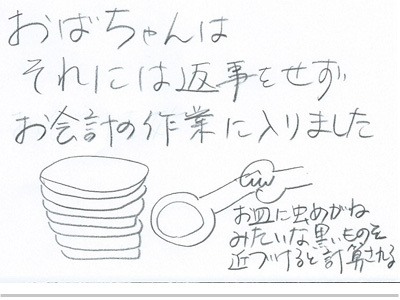 おばちゃんは
それには返事をせず
お会計の作業に入りました
お皿に虫めがね
みたいな黒いものを
近づけると計算される